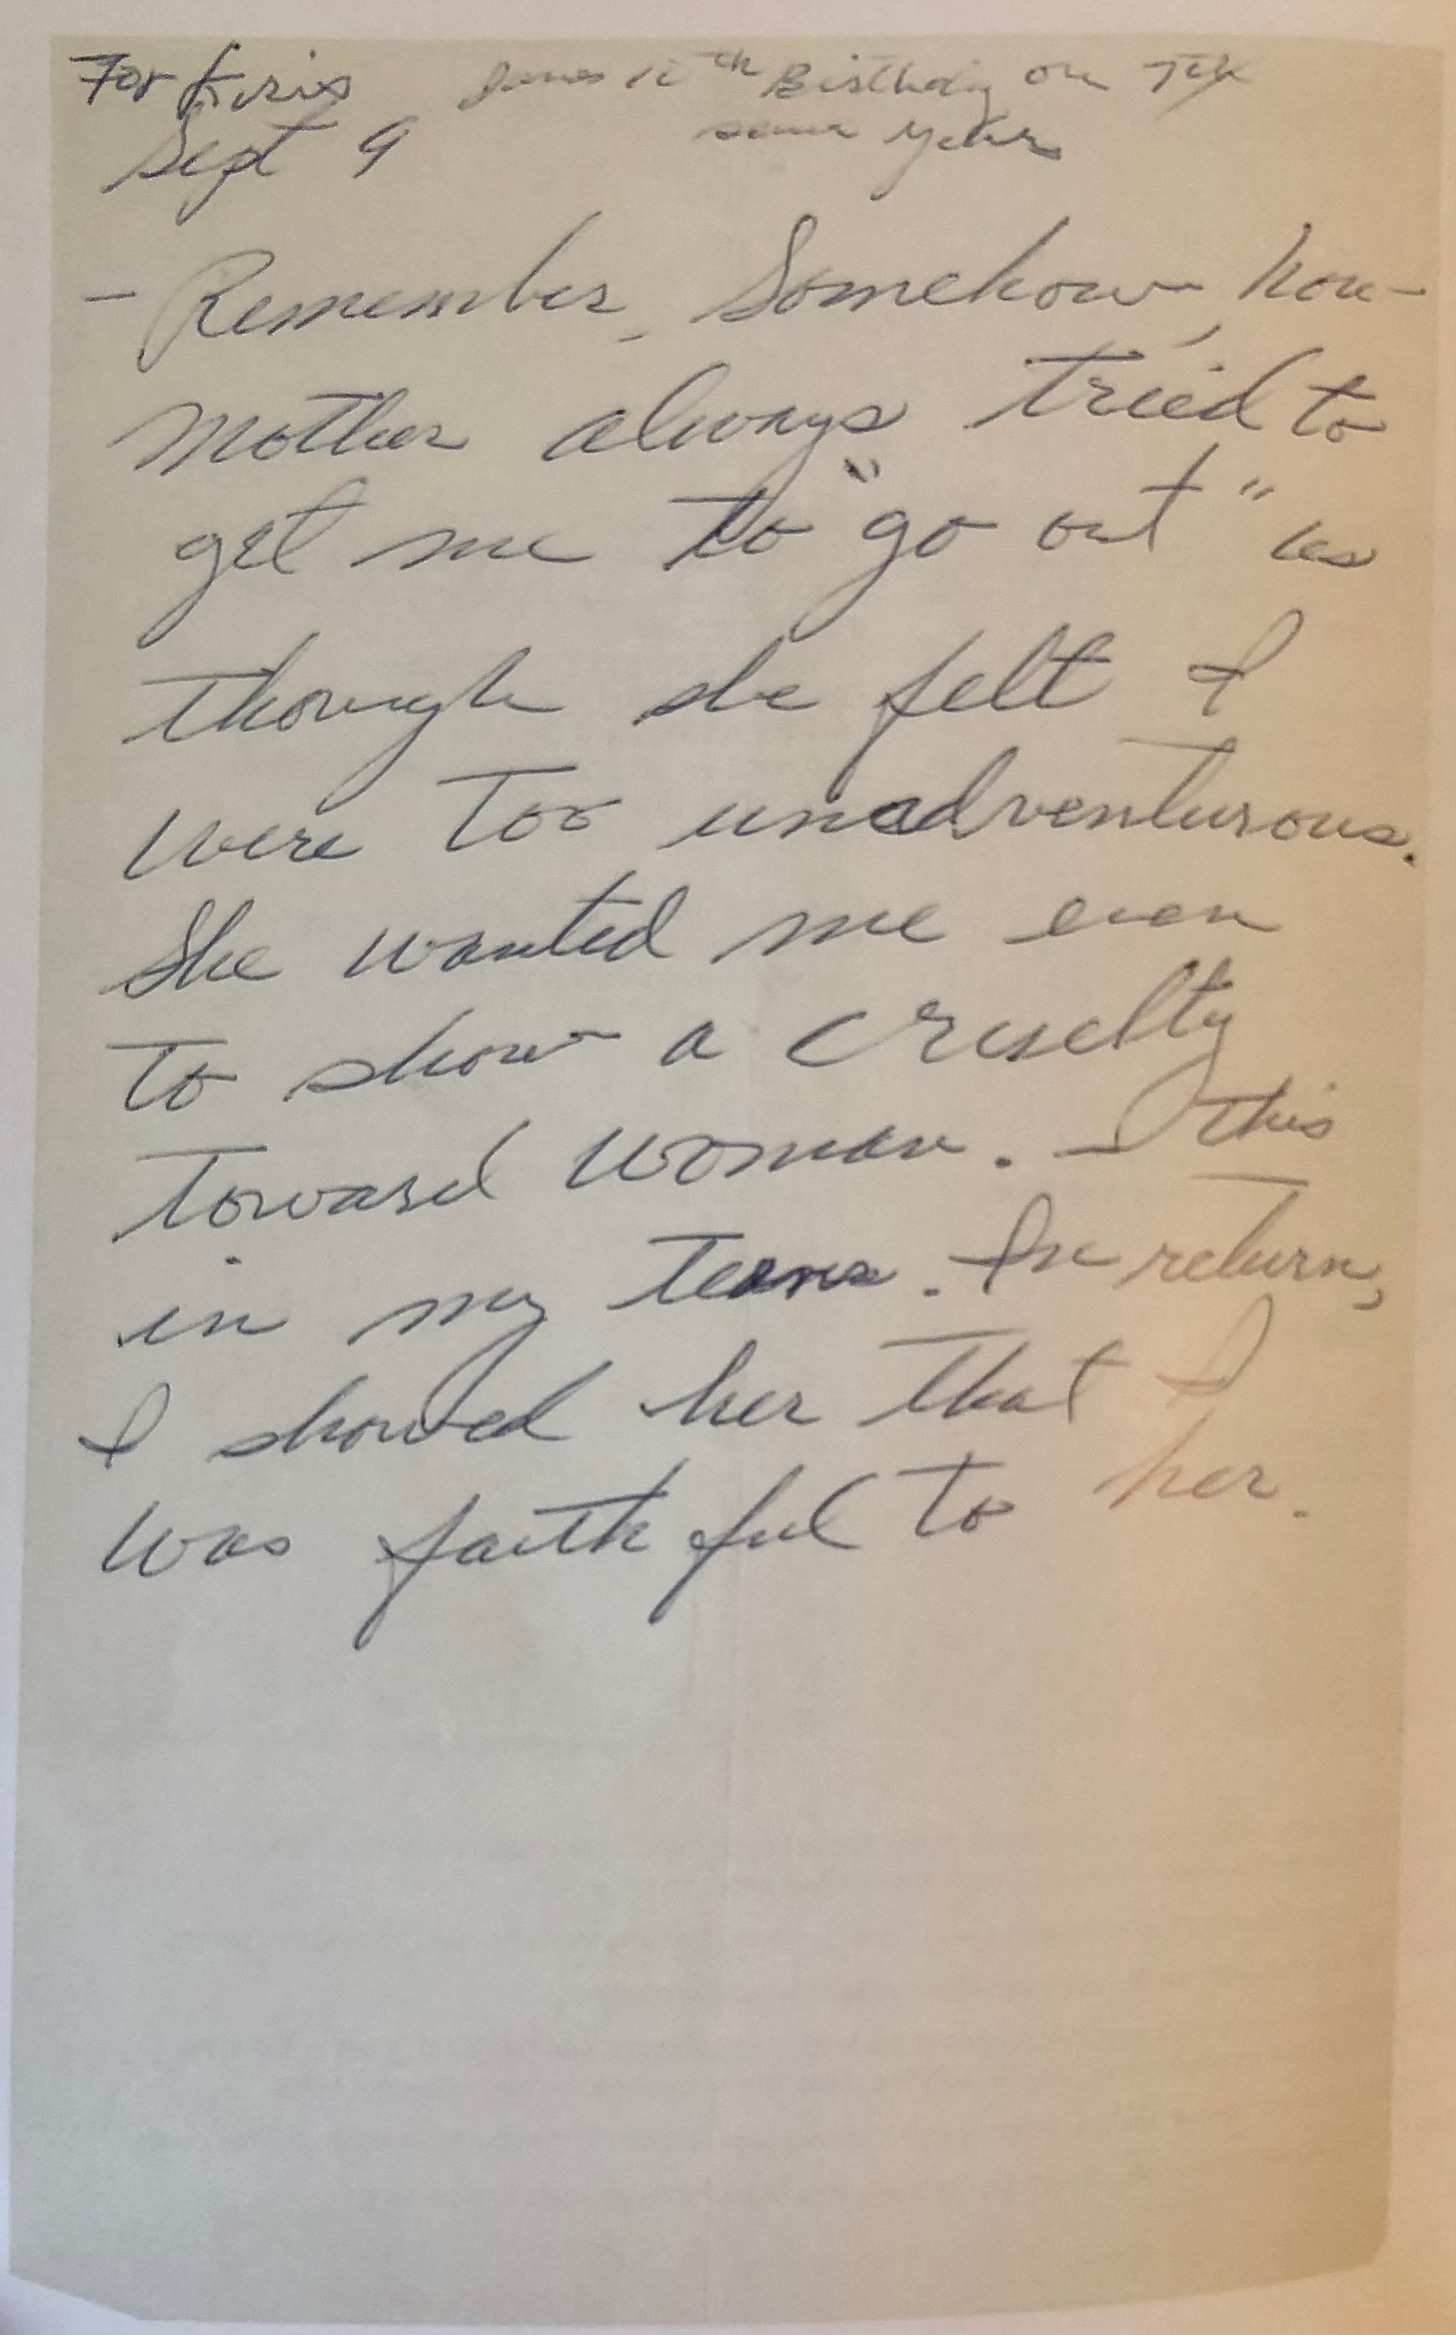 For Kris Jones 12th Birthday on 7th
Sept 9 same year
– Remember, Somehow, how
mother always tried to
get me to "go out" as
though she felt I
were too unadventurous.
She wanted me even
to show a cruelty
toward woman. – This
in my teens. In return,
I showed her that I
was faithful to her.